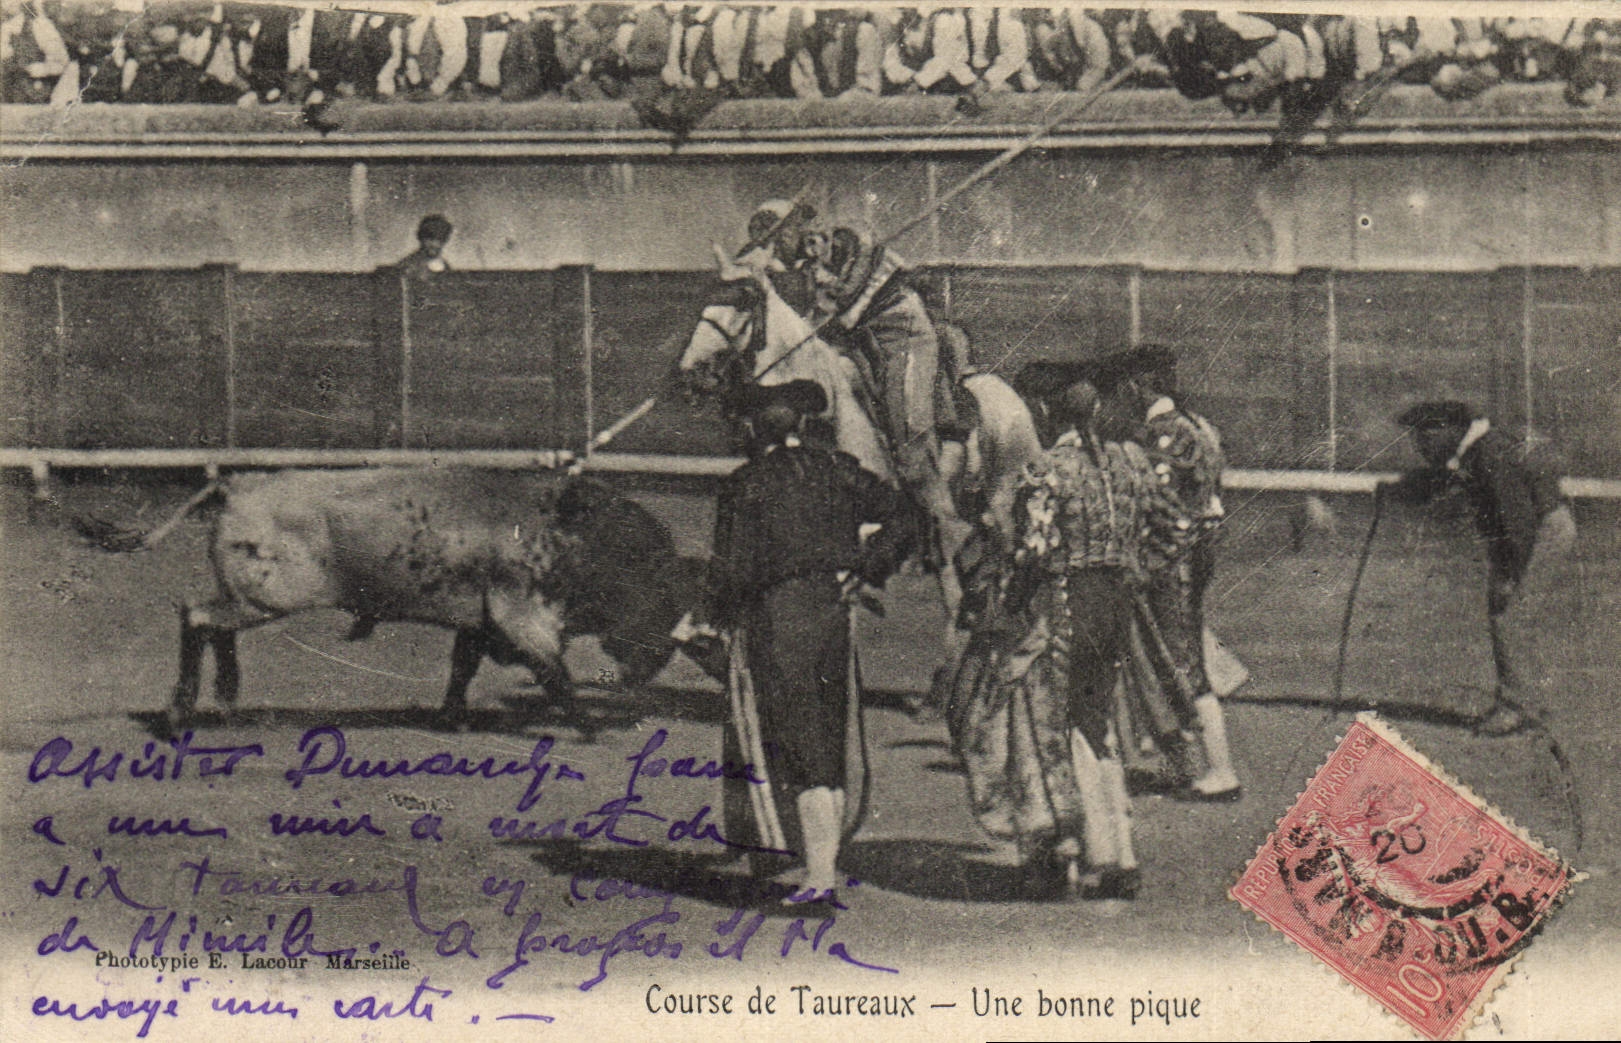 Assister Dimanche passé
a une mise a mort de
six Taureaux en compagnie
de Mimile. A propos il m'a
envoyé une carte. —
Phototypie E. Lacour Marseille
Course de Taureaux — Une bonne pique
RÉPUBLIQUE FRANÇAISE
POSTES
10
20